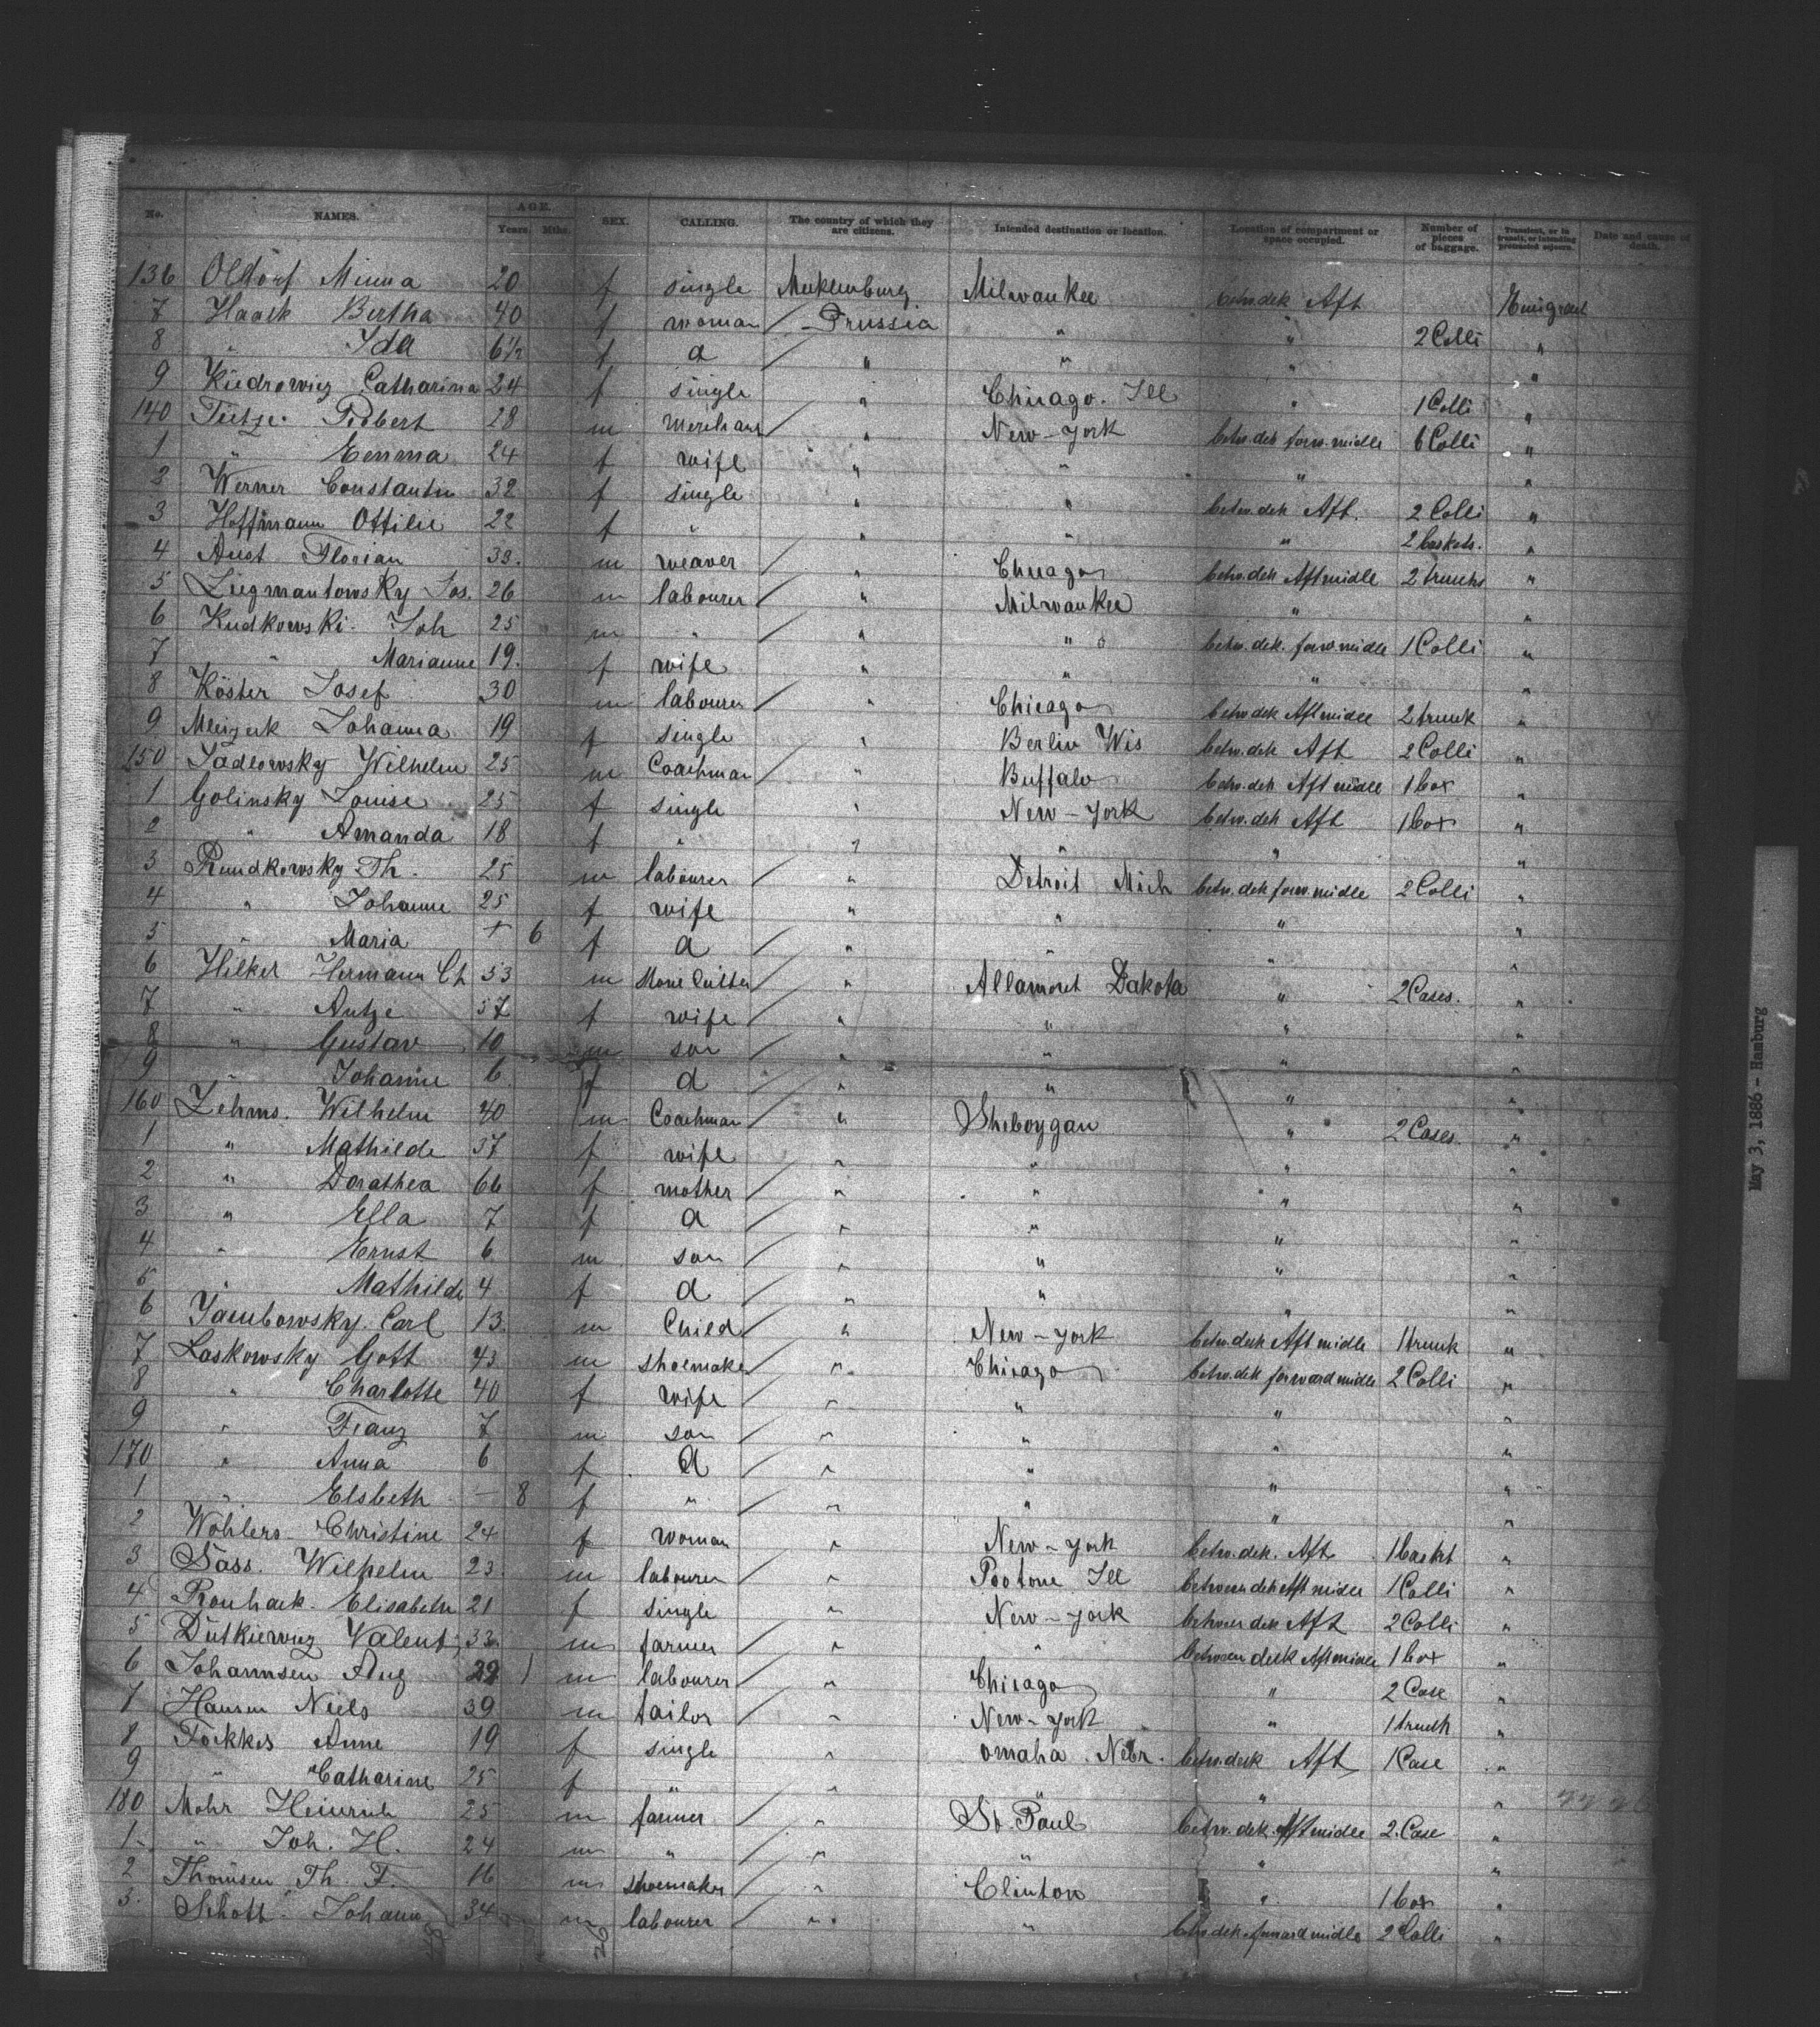 No. NAMES. AGE. Years. Mths. SEX. CALLING. The country of which they are citizens. Intended destination or location. Location of compartment or space occupied. Number of pieces of baggage. Transient, or in transit, or intending protracted sojourn. Date and cause of death.
136 Oldorf Minna 20 f single Meklenburg Milwaukee betw.dek Aft Emigrant
7 Haack Bertha 40 f woman Prussia " " 2 Colli "
8 " Ida 6½ f d " " " "
9 Kiedrowicz Catharina 24 f single " Chicago. Ill " 1 Colli "
140 Tietze. Robert 28 m merchant " New-York betw.dek forw.midle 6 Colli "
1 " Emma 24 f wife " " " "
2 Werner Constantin 32 f single " " betw.dek Aft. 2 Colli "
3 Hoffmann Ottilie 22 f " " " " 2 baskets. "
4 Aust Florian 38. m weaver " Chicago betw.dek Aft midle 2 trunks "
5 Ziegmantowsky Jos. 26 m labourer " Milwaukee " "
6 Kudkowski. Joh 25 m " " " betw.dek. forw midle 1 Colli "
7 " Marianne 19. f wife " " " "
8 Köster Josef 30 m labourer " Chicago betw.dek Aft midle 2 trunk "
9 Johanna 19 f single " Berlin Wis betw.dek Aft 2 Colli "
150 Jadlowsky Wilhelm 25 m Coachman " Buffalo betw.dek Aft midle 1 box "
1 Golinsky Louise 25 f single " New-York betw.dek Aft 1 box "
2 " Amanda 18 f " " " " "
3 Rundkowsky Th. 25 m labourer " Detroit Mich betw.dek forw.midle 2 Colli "
4 " Johanne 25 f wife " " " "
5 " Maria + 6 f d " " " "
6 Hilker Hermann Ch 53 m Stone Cutter " Allamont Dakota " 2 Cases. "
7 " Antze 57 f wife " " " "
8 " Gustav 10 m son " " " "
9 " Johanne 6 f d " " " "
160 Zehms. Wilhelm 40 m Coachman " Sheboygan " 2 Cases. "
1 " Mathilde 37 f wife " " " "
2 " Dorathea 66 f mother " " " "
3 " Ella 7 f d " " " "
4 " Ernst 6 m son " " " "
5 " Mathilde 4 f d " " " "
6 Jambowsky. Carl 13. m Child " New-York betw.dek Aft midle 1 trunk "
7 Laskowsky Gott 43 m shoemaker " Chicago betw.dek forward midle 2 Colli "
8 " Charlotte 40 f wife " " " "
9 " Franz 7 m son " " " "
170 " Anna 6 f d " " " "
1 " Elsbeth - 8 f " " " " "
2 Wohlers Christine 24 f woman " New-York betw.dek. Aft 1 baskt "
3 Sass. Wilhelm 23. m labourer " Peotone Ill between dek Aft midle 1 Colli "
4 Elisabeth 21 f single " New-York between dek Aft 2 Colli "
5 Dutkiewicz Valent. 33. m farmer " " between deck Aft midle 1 box "
6 Johannsen Aug 29 m labourer " Chicago " 2 Case "
7 Hansen Niels 39 m tailor " New-York " 1 trunk "
8 Fokkes Anne 19 f single " Omaha. Nebr. betw.deck Aft 1 Case "
9 " Catharine 25 f " " " " "
180 Mohr Heinrich 25 m farmer " St. Paul betw.dek. Aft midle 2. Case "
1 " Joh. H. 24 m " " " " "
2 Thomsen Th. F. 16 m shoemaker " Clinton " 1 box "
3. Schott Johann 34 m labourer " " betw.dek forward midle 2 Colli "
26
May 3, 1886 - Hamburg